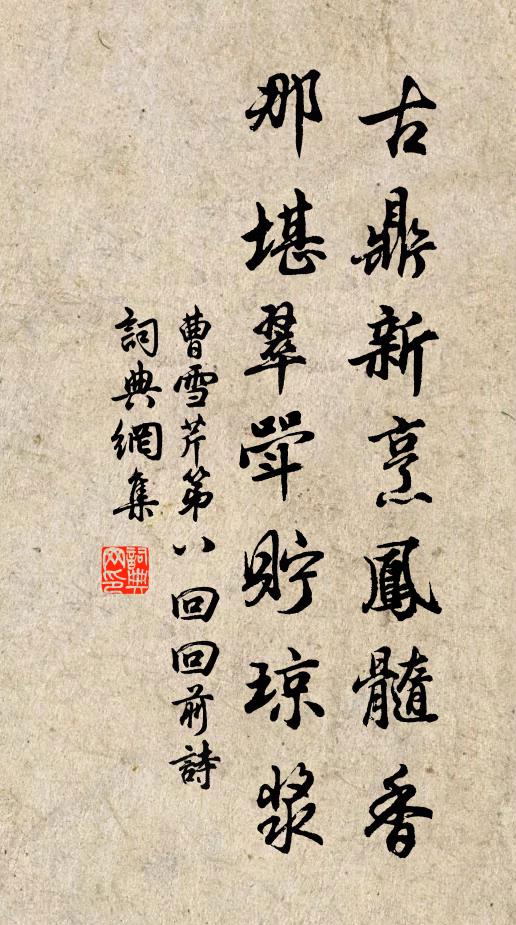 古鼎新烹鳳髓香
那堪翠斝貯琼漿
曹雪芹第八回回前詩
詞典網集
詞典网印